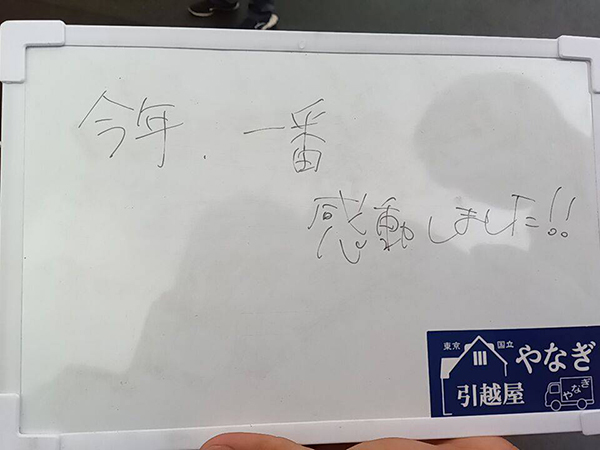 今年、一番
感動しました!!
東京 国立 やなぎ
引越屋 やなぎ